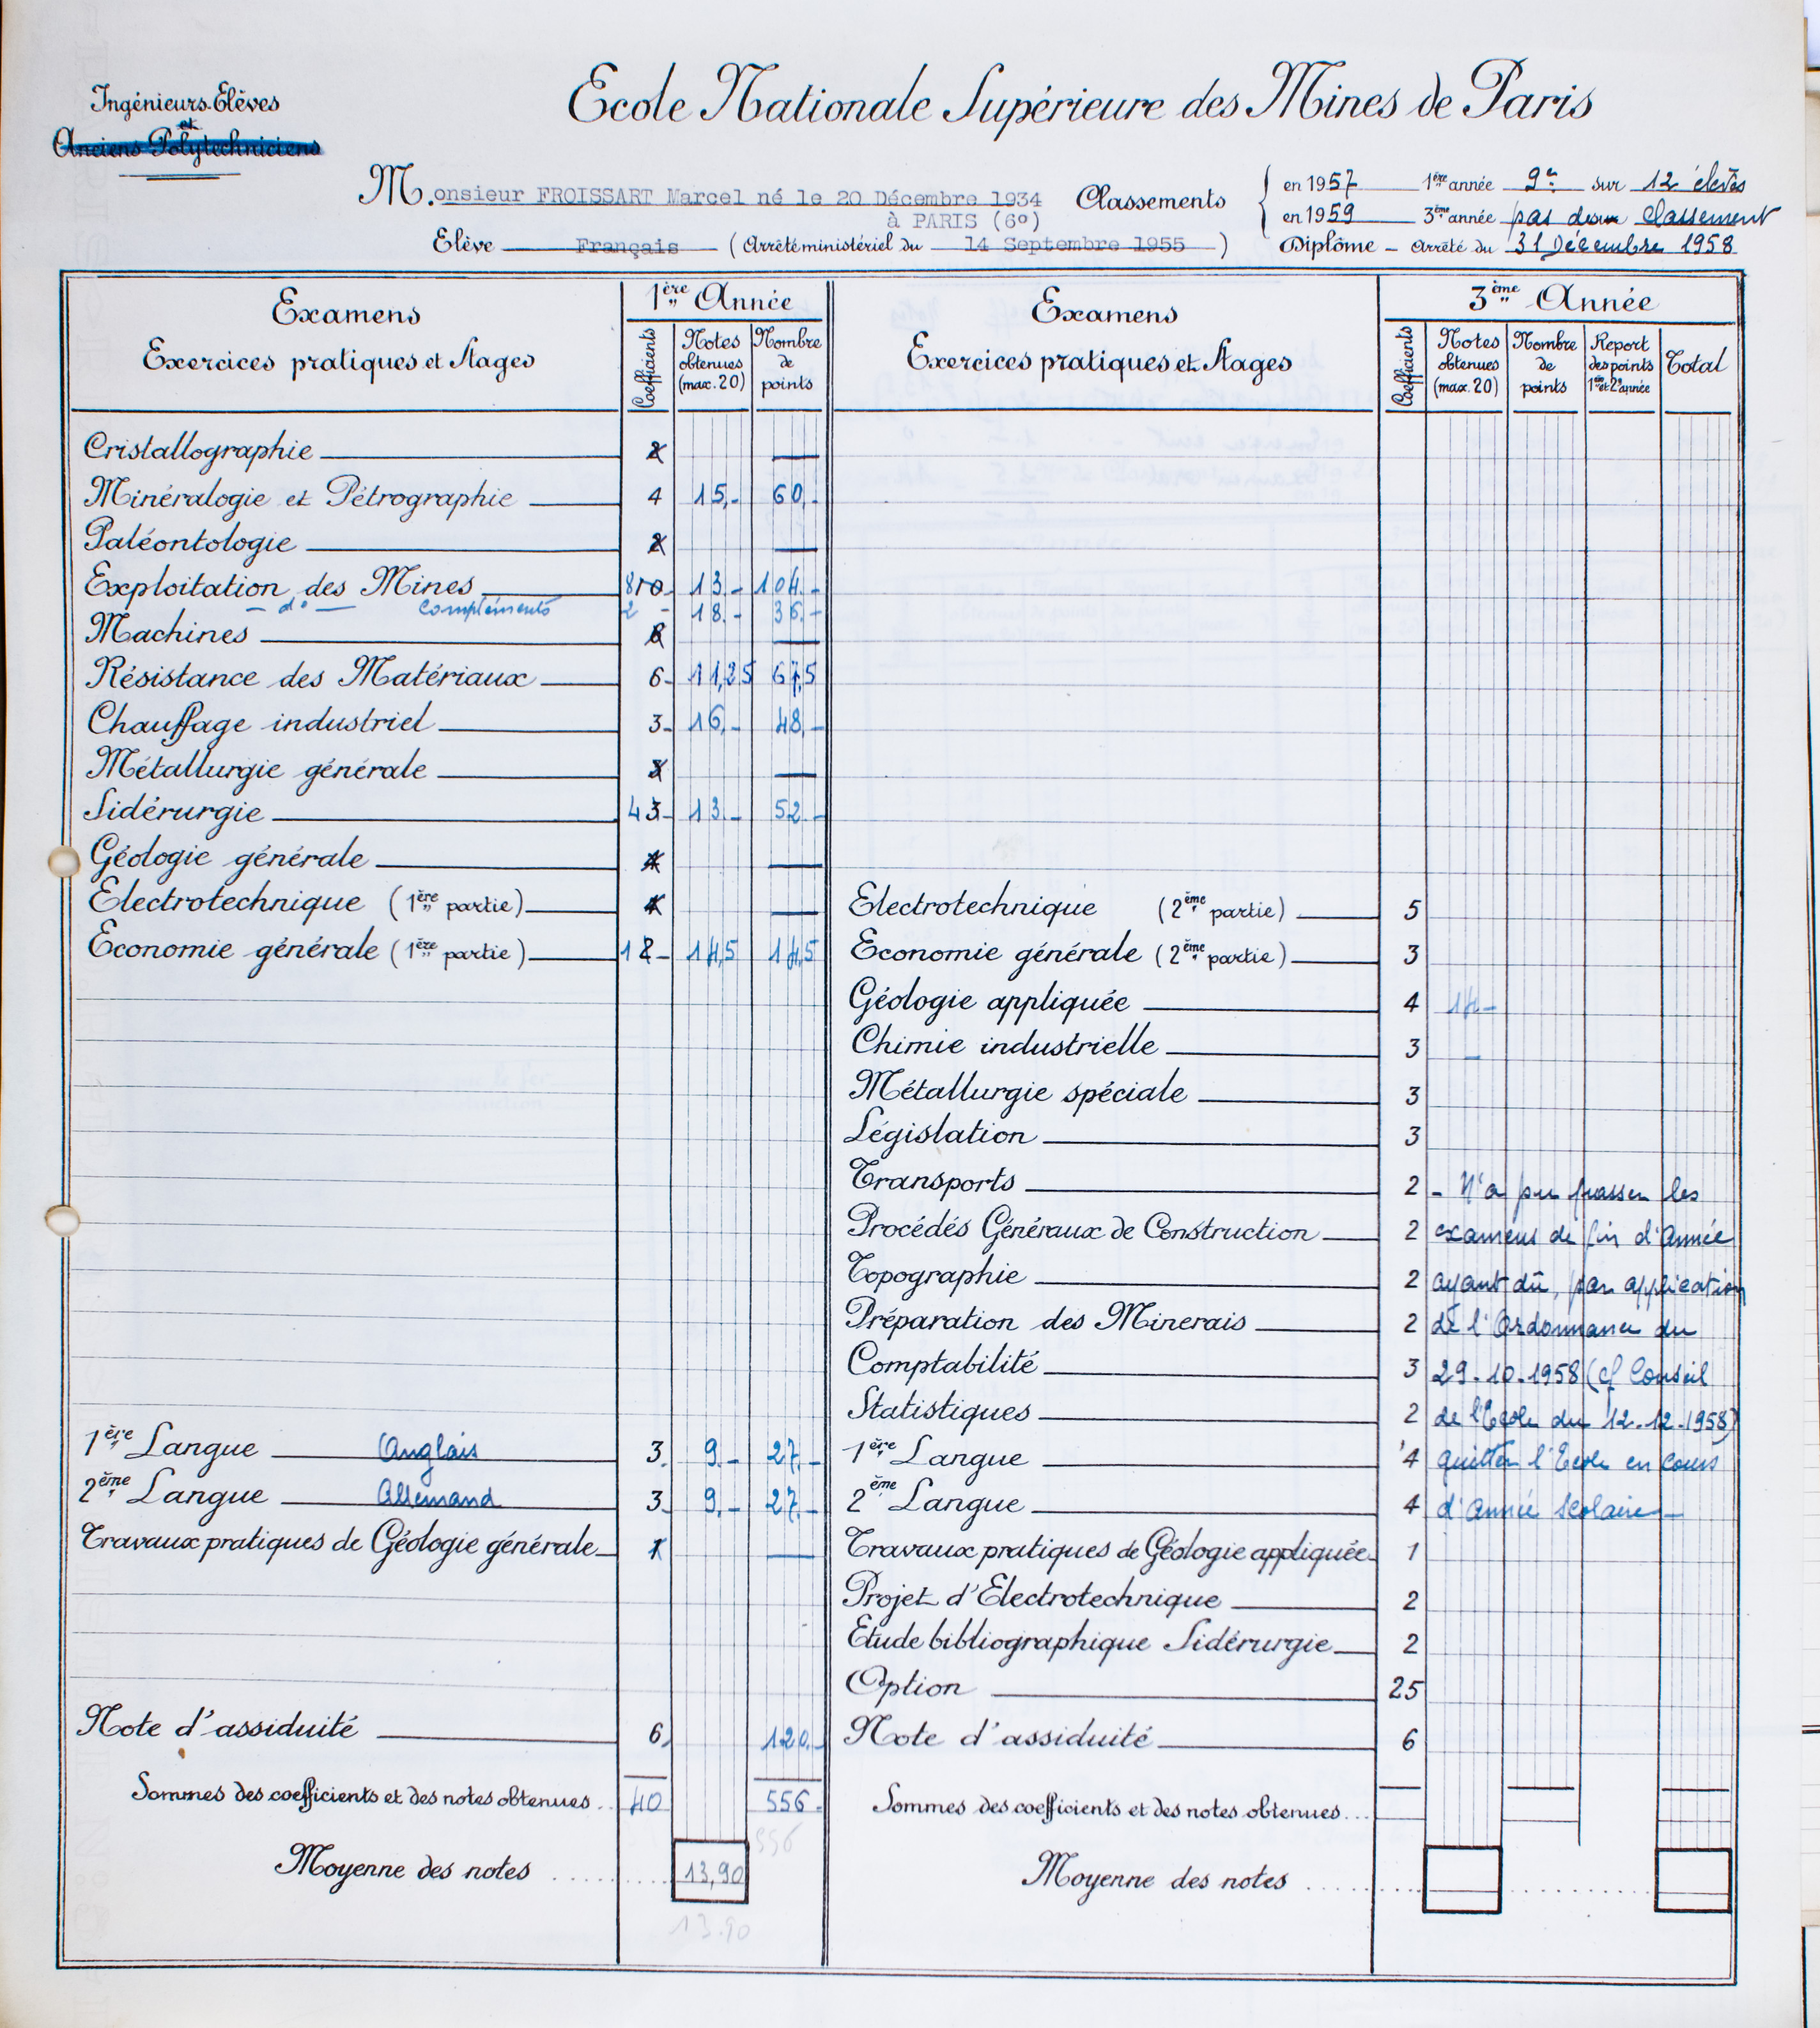 Ingénieurs-Elèves
et
Anciens Polytechniciens
Ecole Nationale Supérieure des Mines de Paris
M.onsieur FROISSART Marcel né le 20 Décembre 1934
à PARIS (6°)
Elève Français (Arrêté ministériel du 14 Septembre 1955)
Classements
en 1957 1ère année 9e sur 12 élèves
en 1959 3ème année pas de classement
Diplôme - Arrêté du 31 Décembre 1958
Examens
Exercices pratiques et Stages
1ère Année
Coefficients
Notes obtenues (max. 20)
Nombre de points
Cristallographie 2 —
Minéralogie et Pétrographie 4 15,- 60,-
Paléontologie 2 —
Exploitation des Mines 8 10 13.- 104.-
- d° - Compléments 2 - 18.- 36.-
Machines 6 —
Résistance des Matériaux 6- 11,25 67,5
Chauffage industriel 3- 16,- 48,-
Métallurgie générale 3 —
Sidérurgie 4 3- 13.- 52.-
Géologie générale 4 —
Electrotechnique (1ère partie) 4 —
Economie générale (1ère partie) 1 2- 14,5 14,5
1ère Langue Anglais 3. 9.- 27.-
2ème Langue Allemand 3. 9.- 27.-
Travaux pratiques de Géologie générale 1 —
Note d'assiduité 6, 120.-
Sommes des coefficients et des notes obtenues .. 40 556.
556
Moyenne des notes 13,90
13.90
Examens
Exercices pratiques et Stages
3ème Année
Coefficients
Notes obtenues (max. 20)
Nombre de points
Report des points 1ère et 2e année
Total
Electrotechnique (2ème partie) 5
Economie générale (2ème partie) 3
Géologie appliquée 4 14-
Chimie industrielle 3 -
Métallurgie spéciale 3
Législation 3
Transports 2 - N'a pu passer les
Procédés Généraux de Construction 2 examens de fin d'Année
Topographie 2 ayant dû, par application
Préparation des Minerais 2 de l'Ordonnance du
Comptabilité 3 29.10.1958 (cf Conseil
Statistiques 2 de l'Ecole du 12.12.1958)
1ère Langue 4 quitter l'Ecole en cours
2ème Langue 4 d'année scolaire -
Travaux pratiques de Géologie appliquée 1
Projet d'Electrotechnique 2
Etude bibliographique Sidérurgie 2
Option 25
Note d'assiduité 6
Sommes des coefficients et des notes obtenues ...
Moyenne des notes